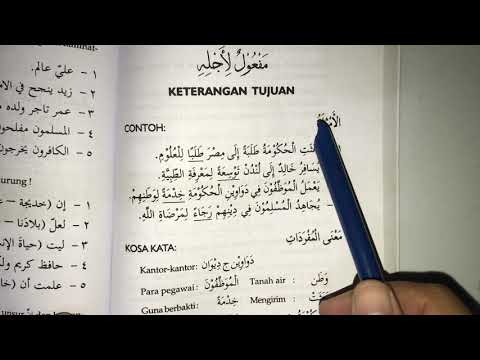 مَفْعُوْلٌ لِأَجْلِهِ
KETERANGAN TUJUAN
CONTOH:
الْحُكُوْمَةُ طَلَبَةً إِلَى مِصْرَ طَلَبًا لِلْعُلُوْمِ.
يُسَافِرُ خَالِدٌ إِلَى لُنْدُنَ تَوْسِعَةً لِمَعْرِفَةِ الطِّبِّيَّةِ.
يَعْمَلُ الْمُوَظَّفُوْنَ فِي دَوَاوِيْنِ الْحُكُوْمَةِ خِدْمَةً لِوَطَنِهِمْ.
يُجَاهِدُ الْمُسْلِمُوْنَ فِي دِيْنِهِمْ رَجَاءً لِمَرْضَاةِ اللهِ.
KOSA KATA: مَعْنَى الْمُفْرَدَاتِ
Kantor-kantor: دَوَاوِيْنُ ج دِيْوَان
Para pegawai : الْمُوَظَّفُوْنَ Tanah air : وَطَن
Guna berbakti : خِدْمَةً Mengirim :
١ - عليّ عالم.
٢ - زيد ينجح في
٣ - عمر تاجر ولده
٤ - المسلمون مفلحون
٥ - الكافرون يخرجون
urung !
١ - إن (خديجة –
٢ - لعل (بلادنا –
٣ - ليت (حياة
٤ - حافظ كريم
٥ - علمت أن